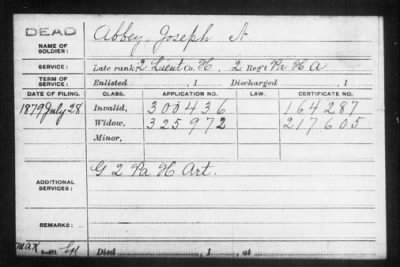 DEAD
NAME OF SOLDIER: Abbey, Joseph A.
SERVICE: Late rank 2 Lieut Co. H, 2 Reg't Pa H A
TERM OF SERVICE: Enlisted , 1 Discharged , 1
DATE OF FILING. CLASS. APPLICATION NO. LAW. CERTIFICATE NO.
1879 July 28 Invalid, 300436 164287
Widow, 325972 217605
Minor,
ADDITIONAL SERVICES: G 2 Pa H Art.
REMARKS:
Died , 1 , at